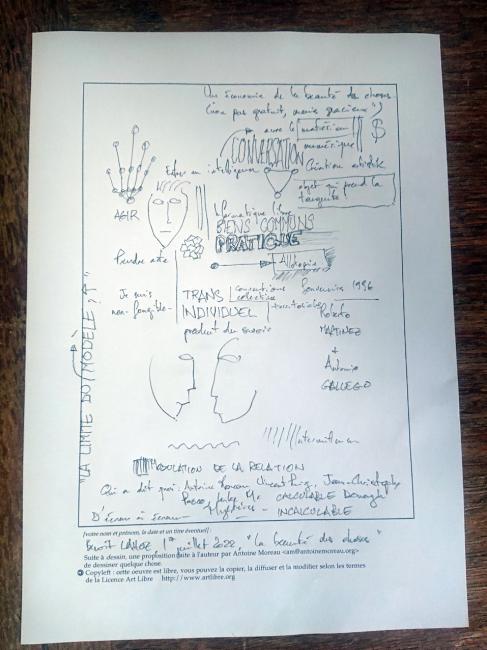 Une économie de la beauté des choses
(non pas gratuit, mais gracieux)
avec le matériau $
numérique
CONVERSATION
Entrer en intelligence
Création artistique
objet qui prend la
tangente
AGIR
Informatique libre
BIENS COMMUNS
PRATIQUE
Prendre acte
Allotopie
Je suis
non-fongible
TRANS
INDIVIDUEL
conventions
collectives
territoriales
Souvenirs 1996
Roberto
MARTINEZ
+
Antonio
GALLEGO
produit du
"LA LIMITE DU MODÈLE"
Intermittence
MODULATION DE LA RELATION
Qui a dit quoi : Antoine Moreau, Vincent Puig, Jean-Christophe
CALCULABLE
Mystères - INCALCULABLE
D'écran à écran
[votre nom et prénom, la date et un titre éventuel] :
Benoît 1er juillet 2022, "La beauté des choses"
Suite à dessin, une proposition faite à l'auteur par Antoine Moreau <am@antoinemoreau.org>
de dessiner quelque chose.
Copyleft : cette oeuvre est libre, vous pouvez la copier, la diffuser et la modifier selon les termes
de la Licence Art Libre http://www.artlibre.org